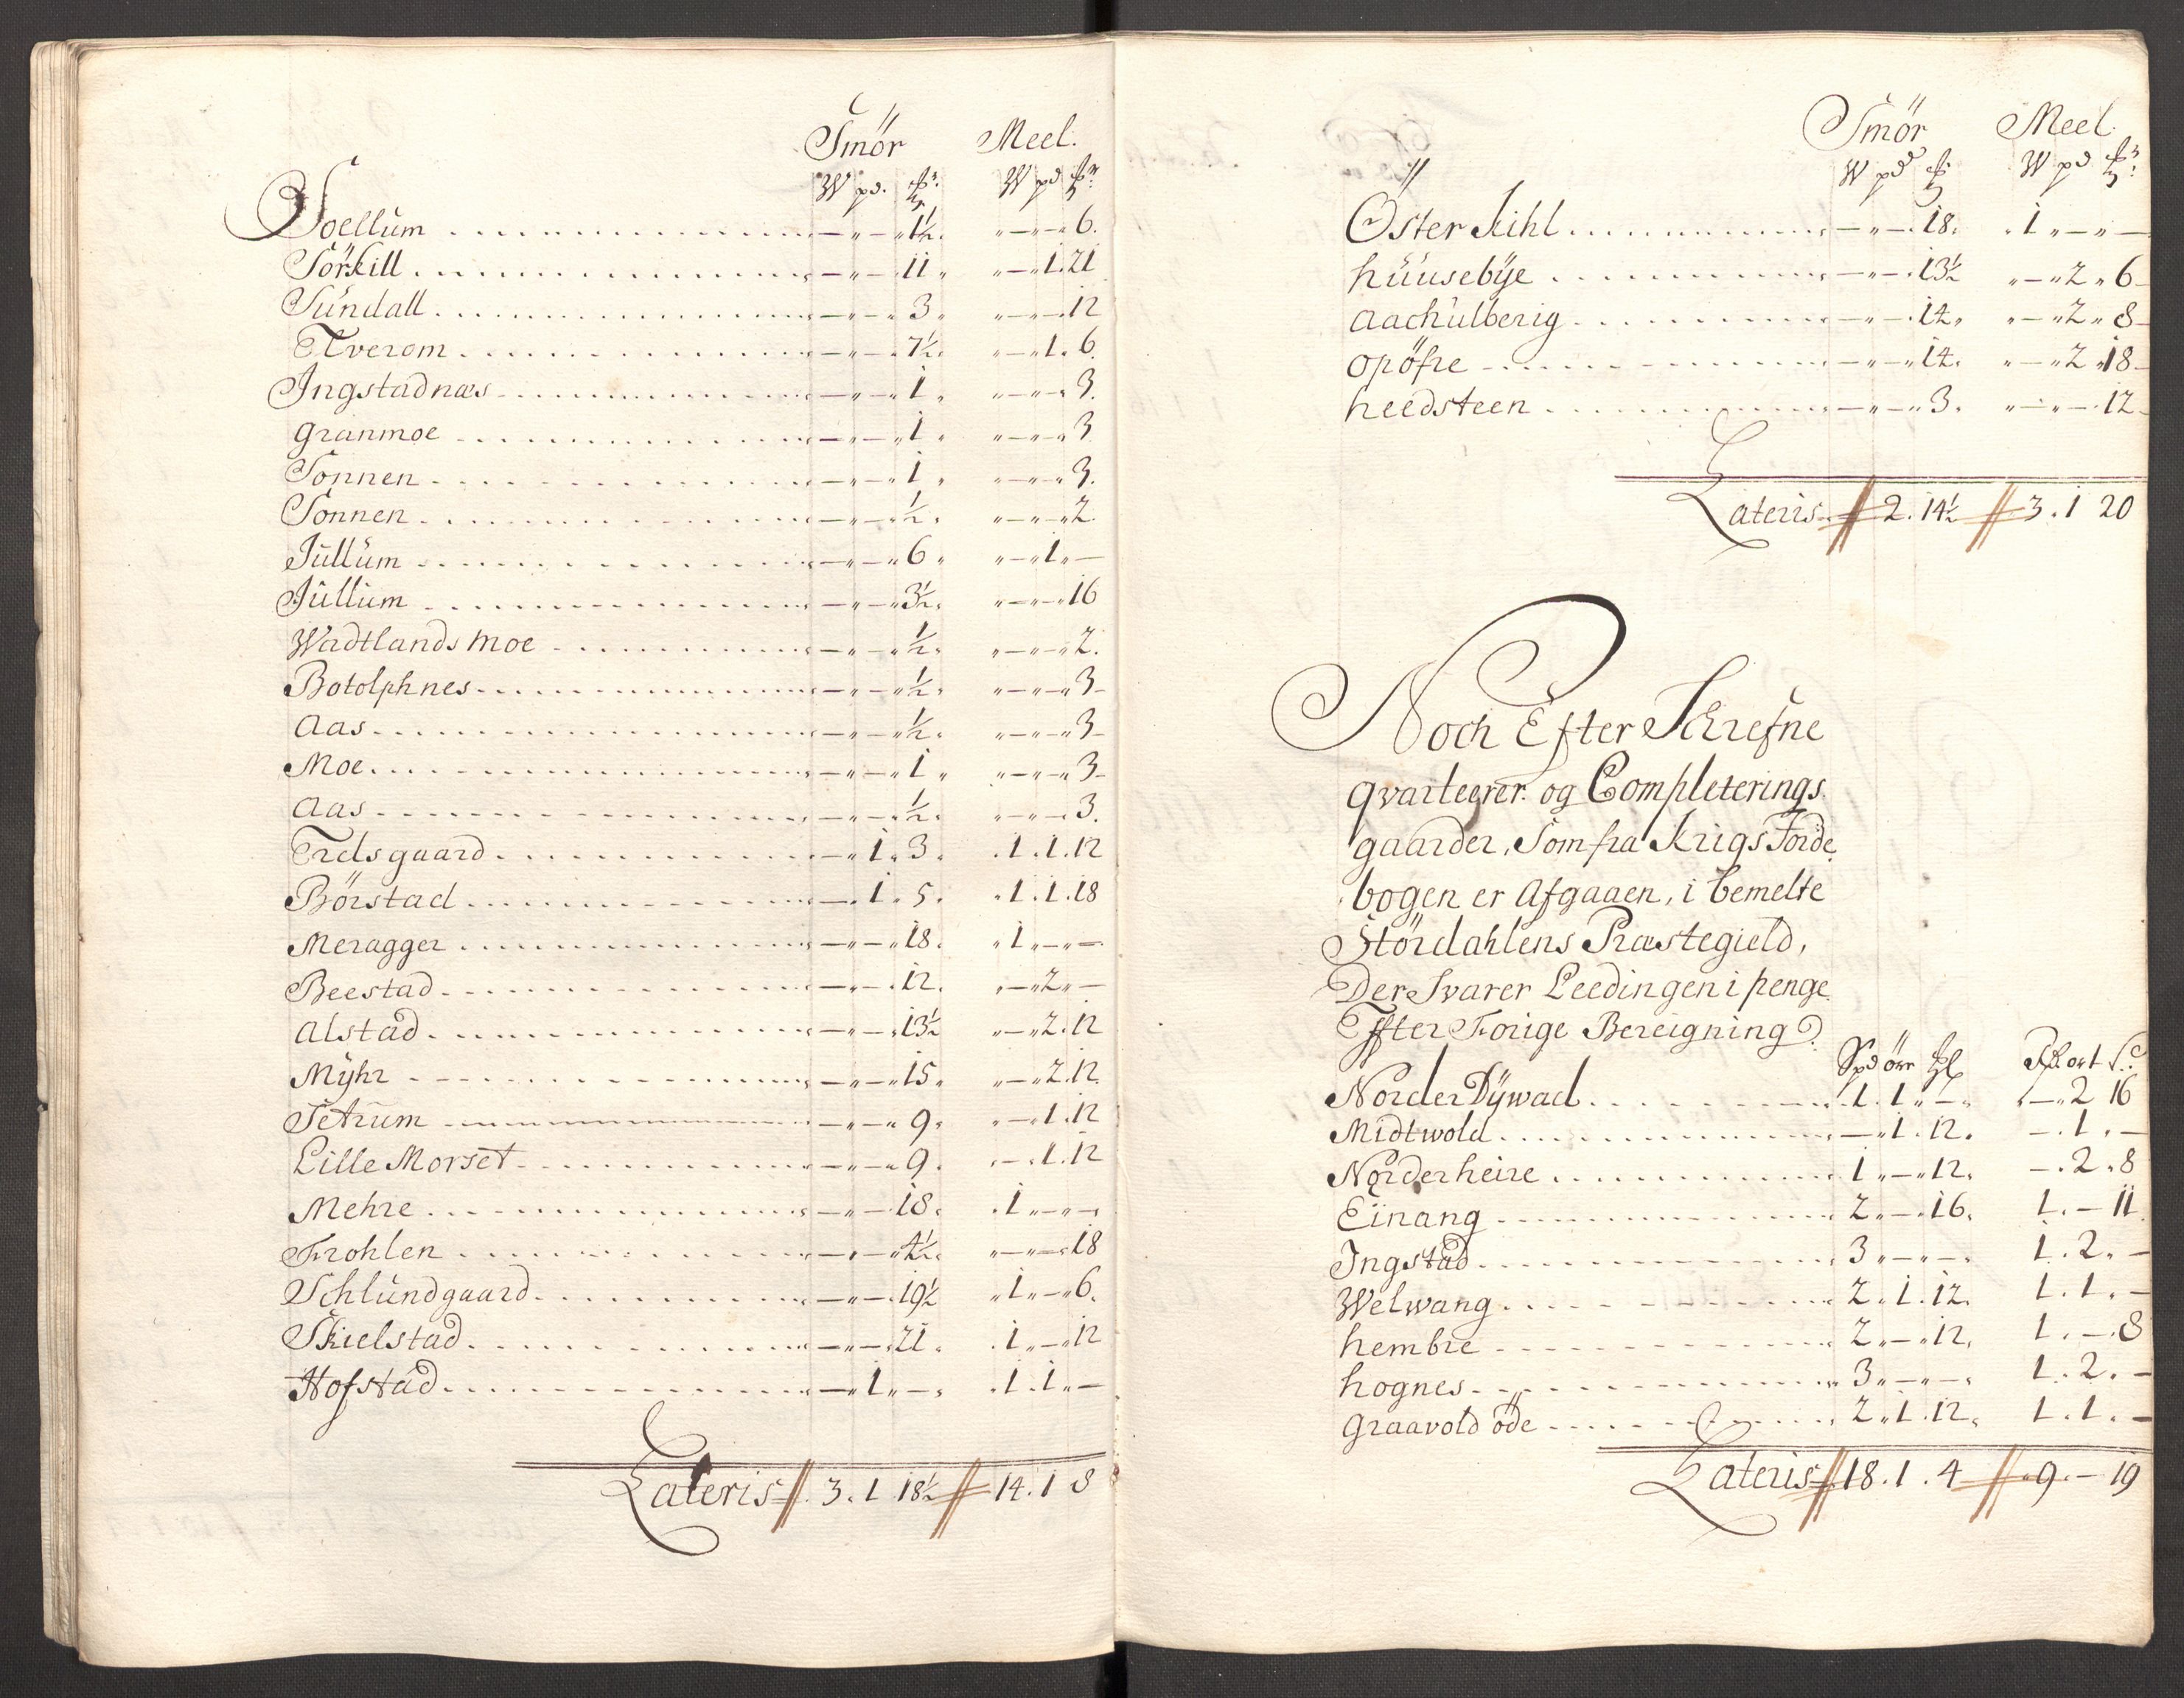 Smör Meel.
W pd. W pd
Soellum 1½. 6.
Sörkill 11 1. 21
Sundall 3 12
Elverom 7½. 1. 6.
Ingstadnæs 1 3.
granmoe 1 3
Sonnen 1 3.
Sonnen ½. 2.
Jullum 6 1
Jullum 3½. 16
Wadtlands moe ½. 2.
Botolphnes ½. 3
Aas ½. 3
Moe 1 3
Aas ½. 3.
Trelsgaard 1. 3. 1. 1. 12
Börstad 1. 5. 1. 1. 18
Meragger 18. 1
Beestad 12. 2
Alstad 13½ 2. 12
Mÿhr 15. 2. 12.
Setrum 9. 1. 12
Lille Morset 9. 1. 12
Mehre 18. 1
Frohlen 4½. 18
Schlundgaard 19½ 1. 6.
Skielstad 21. 1. 12
Hofstad 1 1. 1
Lateris 3. 1 18½ 14. 1 8
Smör Meel
W pd W pd
Öster Kihl 18. 1
huusebÿe 13½ 2. 6
Aachulberig 14. 2. 8
opöfre 14. 2 18
heedsteen 3. 12
Lateris 2. 14½ 3. 1 20
Noch Efter Schrefne
qvarteerer og Completerings
gaarder, Som fra Krigs Jorde
bogen er Afgaaen, i bemelte
Stördahlens Præstegield,
Der Svarer Leedingen i penge
Effter Forige Bereigning
Norder Dÿwad 1. 1 2 16
Midtwold 1. 12. 1
Norderheire 1 12. 2. 8
Einang 2 16. 1. 11
Ingstad 3 1. 2.
Welwang 2. 1. 12. 1. 1.
hembre 2 12. 1. 8
hognes 3 1. 2.
graavold öde 2. 1. 12. 1. 1.
Lateris 18. 1. 4 9. 19